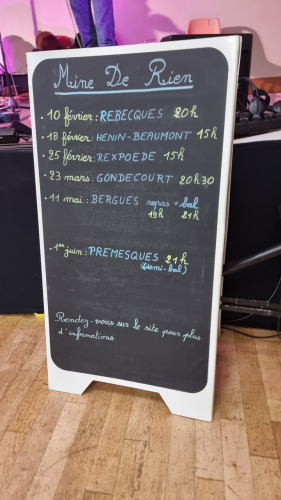 Mine De Rien
• 10 février : REBECQUES 20h
• 18 février : HENIN-BEAUMONT 15h
• 25 février : REXPOEDE 15h
• 23 mars : GONDECOURT 20h30
• 11 mai : BERGUES repas + bal
19h 21h
• 1er juin : PREMESQUES 21h
(demi-bal)
Rendez-vous sur le site pour plus
d'informations